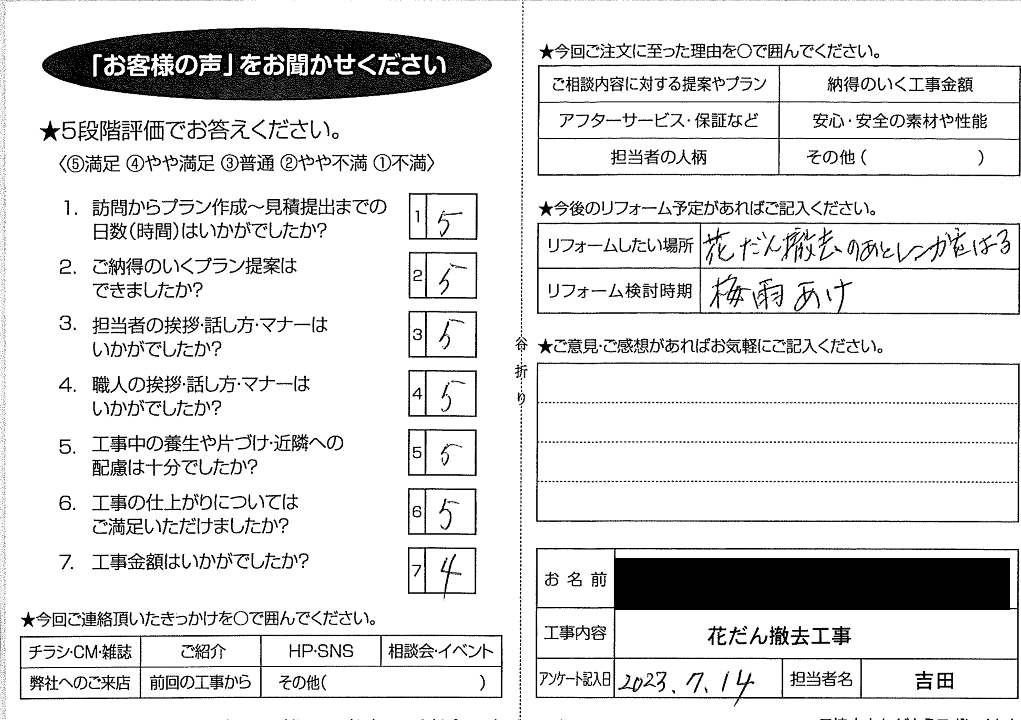 「お客様の声」をお聞かせください
★5段階評価でお答えください。
〈⑤満足 ④やや満足 ③普通 ②やや不満 ①不満〉
1. 訪問からプラン作成～見積提出までの
日数(時間)はいかがでしたか?
1 5
2. ご納得のいくプラン提案は
できましたか?
2 5
3. 担当者の挨拶・話し方・マナーは
いかがでしたか?
3 5
4. 職人の挨拶・話し方・マナーは
いかがでしたか?
4 5
5. 工事中の養生や片づけ・近隣への
配慮は十分でしたか?
5 5
6. 工事の仕上がりについては
ご満足いただけましたか?
6 5
7. 工事金額はいかがでしたか?
7 4
★今回ご連絡頂いたきっかけを○で囲んでください。
チラシ・CM・雑誌 ご紹介 HP・SNS 相談会・イベント
弊社へのご来店 前回の工事から その他( )
谷折り
★今回ご注文に至った理由を○で囲んでください。
ご相談内容に対する提案やプラン 納得のいく工事金額
アフターサービス・保証など 安心・安全の素材や性能
担当者の人柄 その他( )
★今後のリフォーム予定があればご記入ください。
リフォームしたい場所 花だん撤去のあとレンガをはる
リフォーム検討時期 梅雨あけ
★ご意見・ご感想があればお気軽にご記入ください。
お名前
工事内容 花だん撤去工事
アンケート記入日 2023.7.14 担当者名 吉田